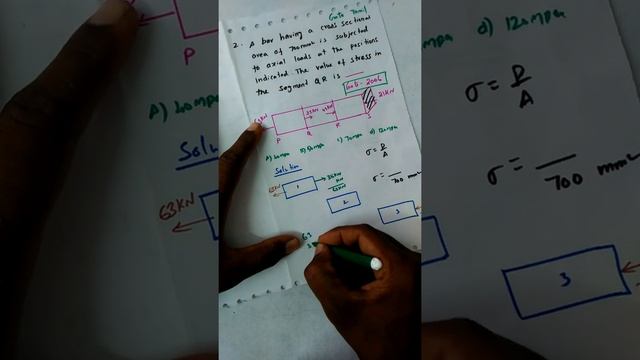 Gate Tamil
2. A bar having a cross sectional
area of 700mm² is subjected
to axial loads at the positions
indicated. The value of stress in
the segment QR is ____
Gate-2006
63KN
21KN
P Q R S
A) 40mpa b) 50mpa c) 70mpa d) 120mpa
Solution
σ = P/A
63KN
1
σ = __/700 mm²
2
3
63
P
A) 40mpa
Solu
63KN
d) 120mpa
σ = P/A
σ = __/700 mm²
3